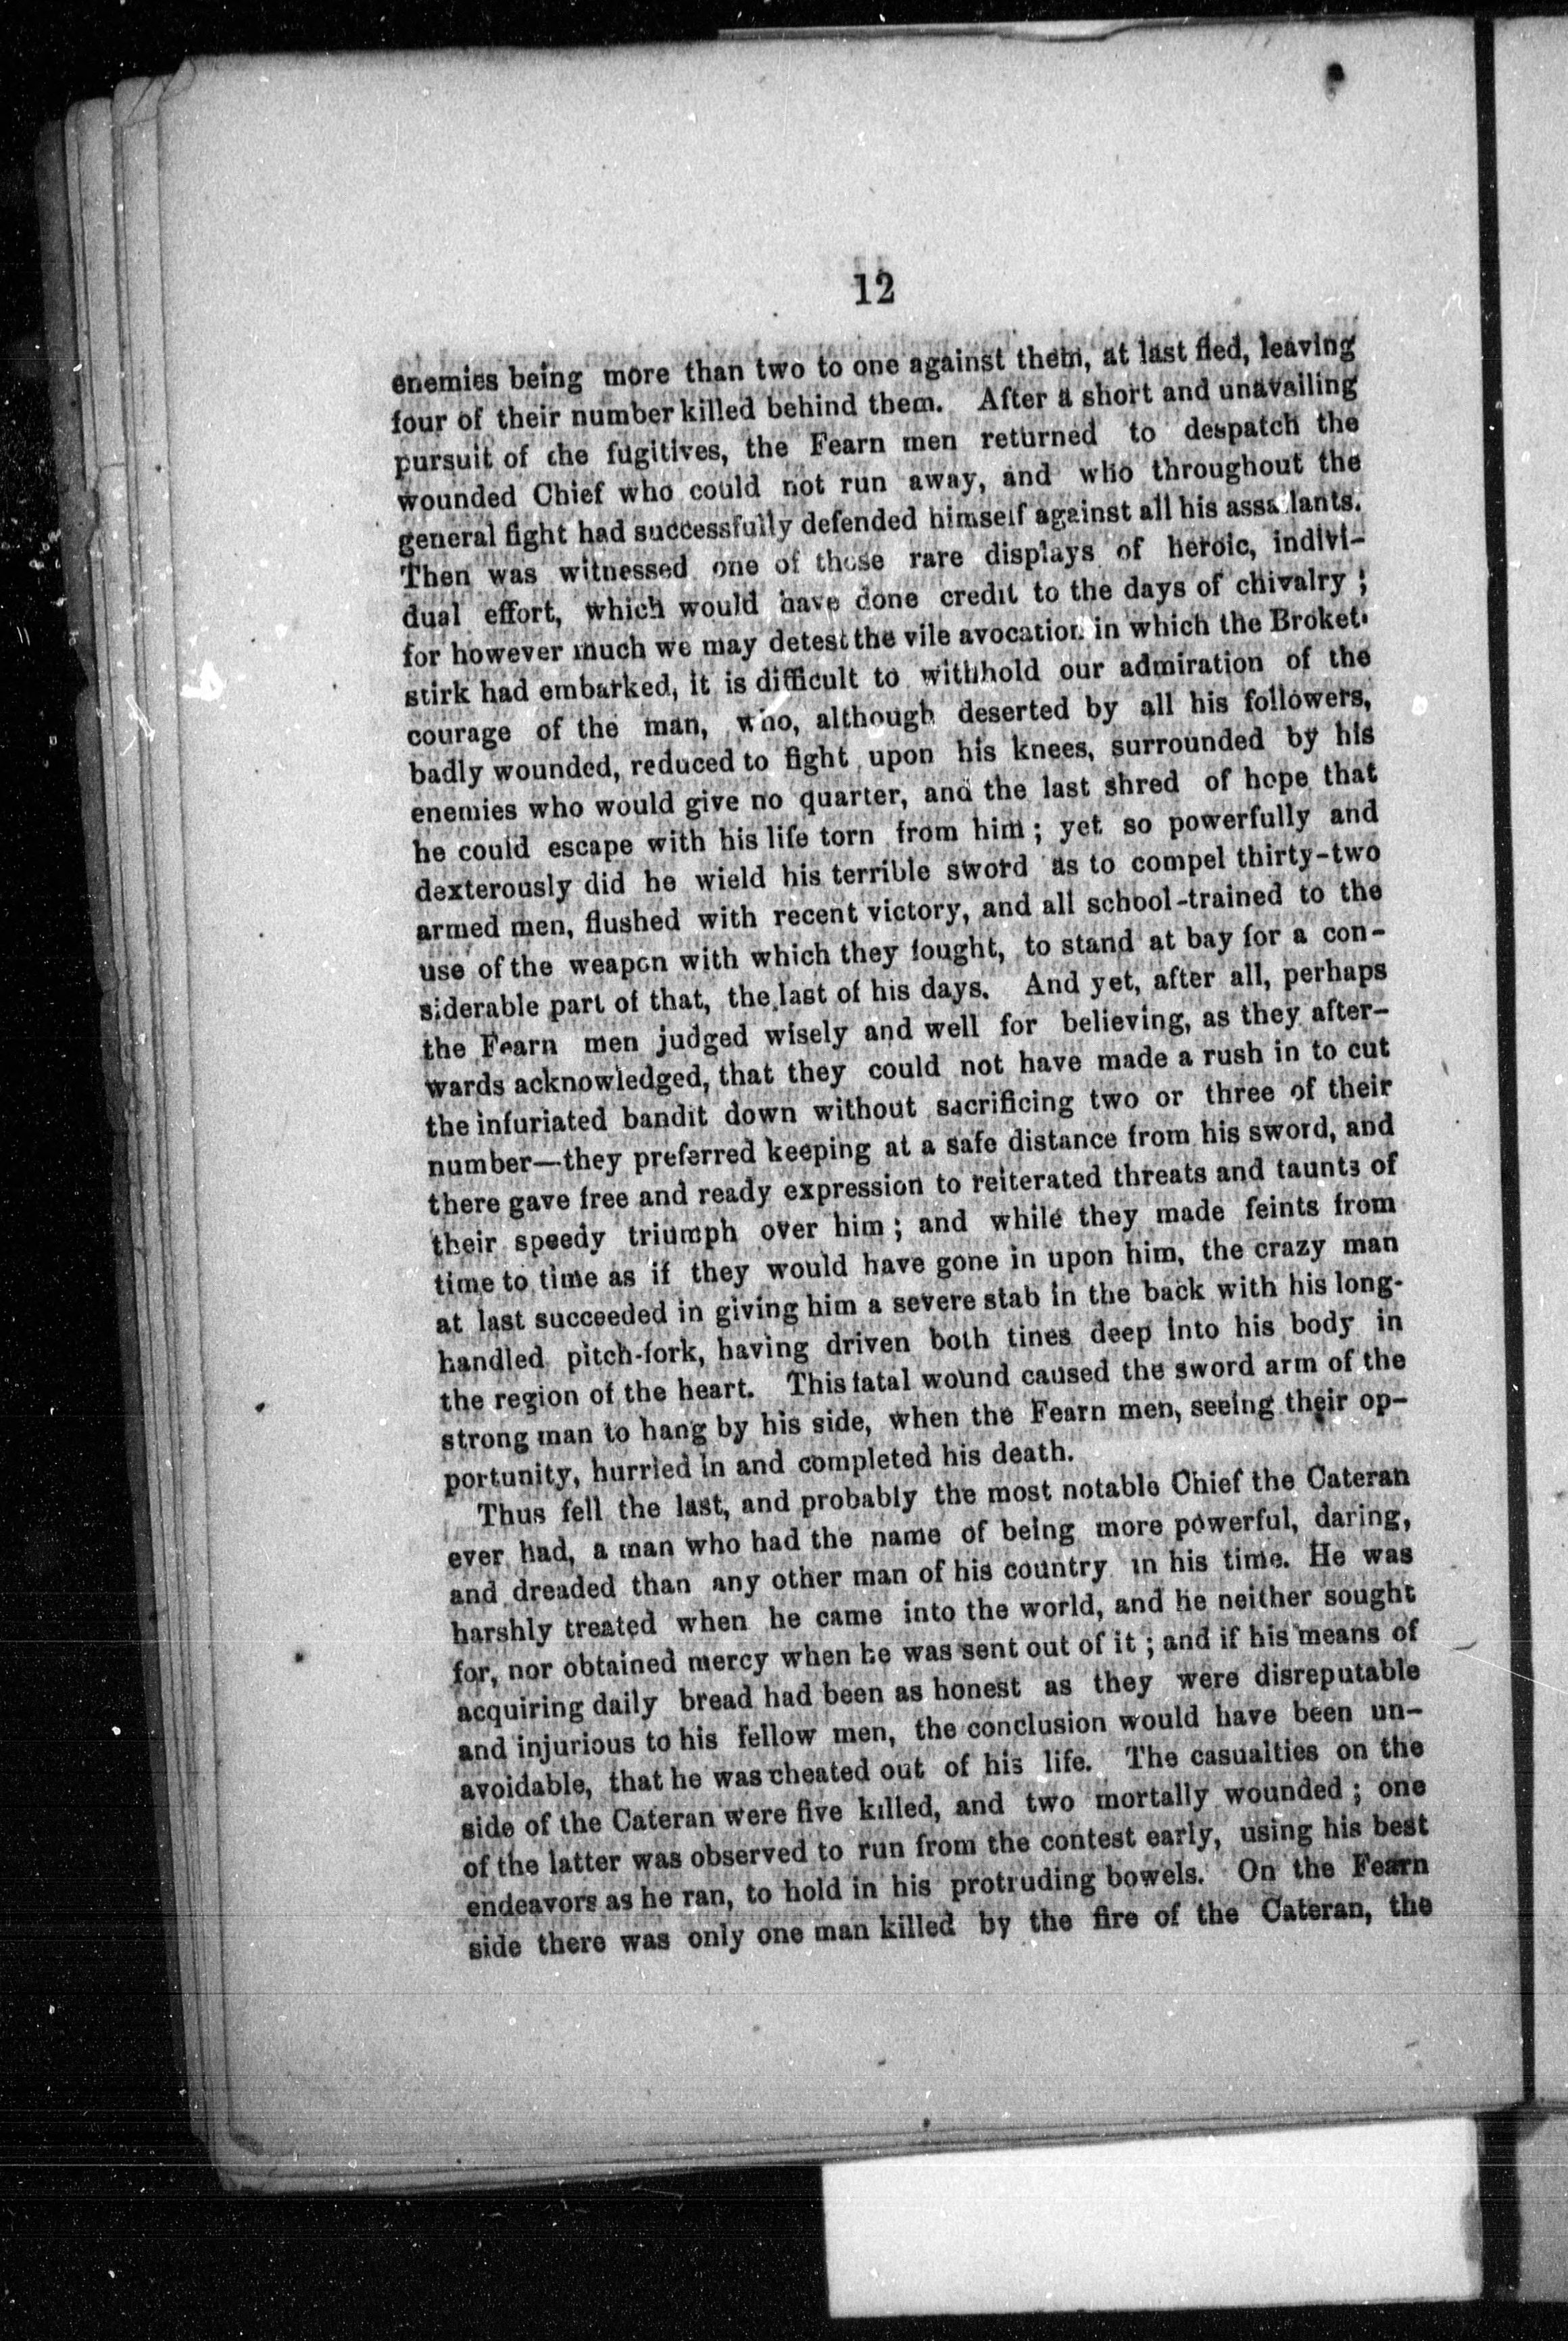 12
enemies being more than two to one against them, at last fled, leaving
four of their number killed behind them. After a short and unavailing
pursuit of the fugitives, the Fearn men returned to despatch the
wounded Chief who could not run away, and who throughout the
general fight had successfully defended himself against all his assailants.
Then was witnessed one of those rare displays of heroic, indivi-
dual effort, which would have done credit to the days of chivalry ;
for however much we may detest the vile avocation in which the Broket-
stirk had embarked, it is difficult to withhold our admiration of the
courage of the man, who, although deserted by all his followers,
badly wounded, reduced to fight upon his knees, surrounded by his
enemies who would give no quarter, and the last shred of hope that
he could escape with his life torn from him ; yet so powerfully and
dexterously did he wield his terrible sword as to compel thirty-two
armed men, flushed with recent victory, and all school-trained to the
use of the weapon with which they fought, to stand at bay for a con-
siderable part of that, the last of his days. And yet, after all, perhaps
the Fearn men judged wisely and well for believing, as they after-
wards acknowledged, that they could not have made a rush in to cut
the infuriated bandit down without sacrificing two or three of their
number—they preferred keeping at a safe distance from his sword, and
there gave free and ready expression to reiterated threats and taunts of
their speedy triumph over him ; and while they made feints from
time to time as if they would have gone in upon him, the crazy man
at last succeeded in giving him a severe stab in the back with his long-
handled pitch-fork, having driven both tines deep into his body in
the region of the heart. This fatal wound caused the sword arm of the
strong man to hang by his side, when the Fearn men, seeing their op-
portunity, hurried in and completed his death.
Thus fell the last, and probably the most notable Chief the Cateran
ever had, a man who had the name of being more powerful, daring,
and dreaded than any other man of his country in his time. He was
harshly treated when he came into the world, and he neither sought
for, nor obtained mercy when he was sent out of it ; and if his means of
acquiring daily bread had been as honest as they were disreputable
and injurious to his fellow men, the conclusion would have been un-
avoidable, that he was cheated out of his life. The casualties on the
side of the Cateran were five killed, and two mortally wounded ; one
of the latter was observed to run from the contest early, using his best
endeavors as he ran, to hold in his protruding bowels. On the Fearn
side there was only one man killed by the fire of the Cateran, the